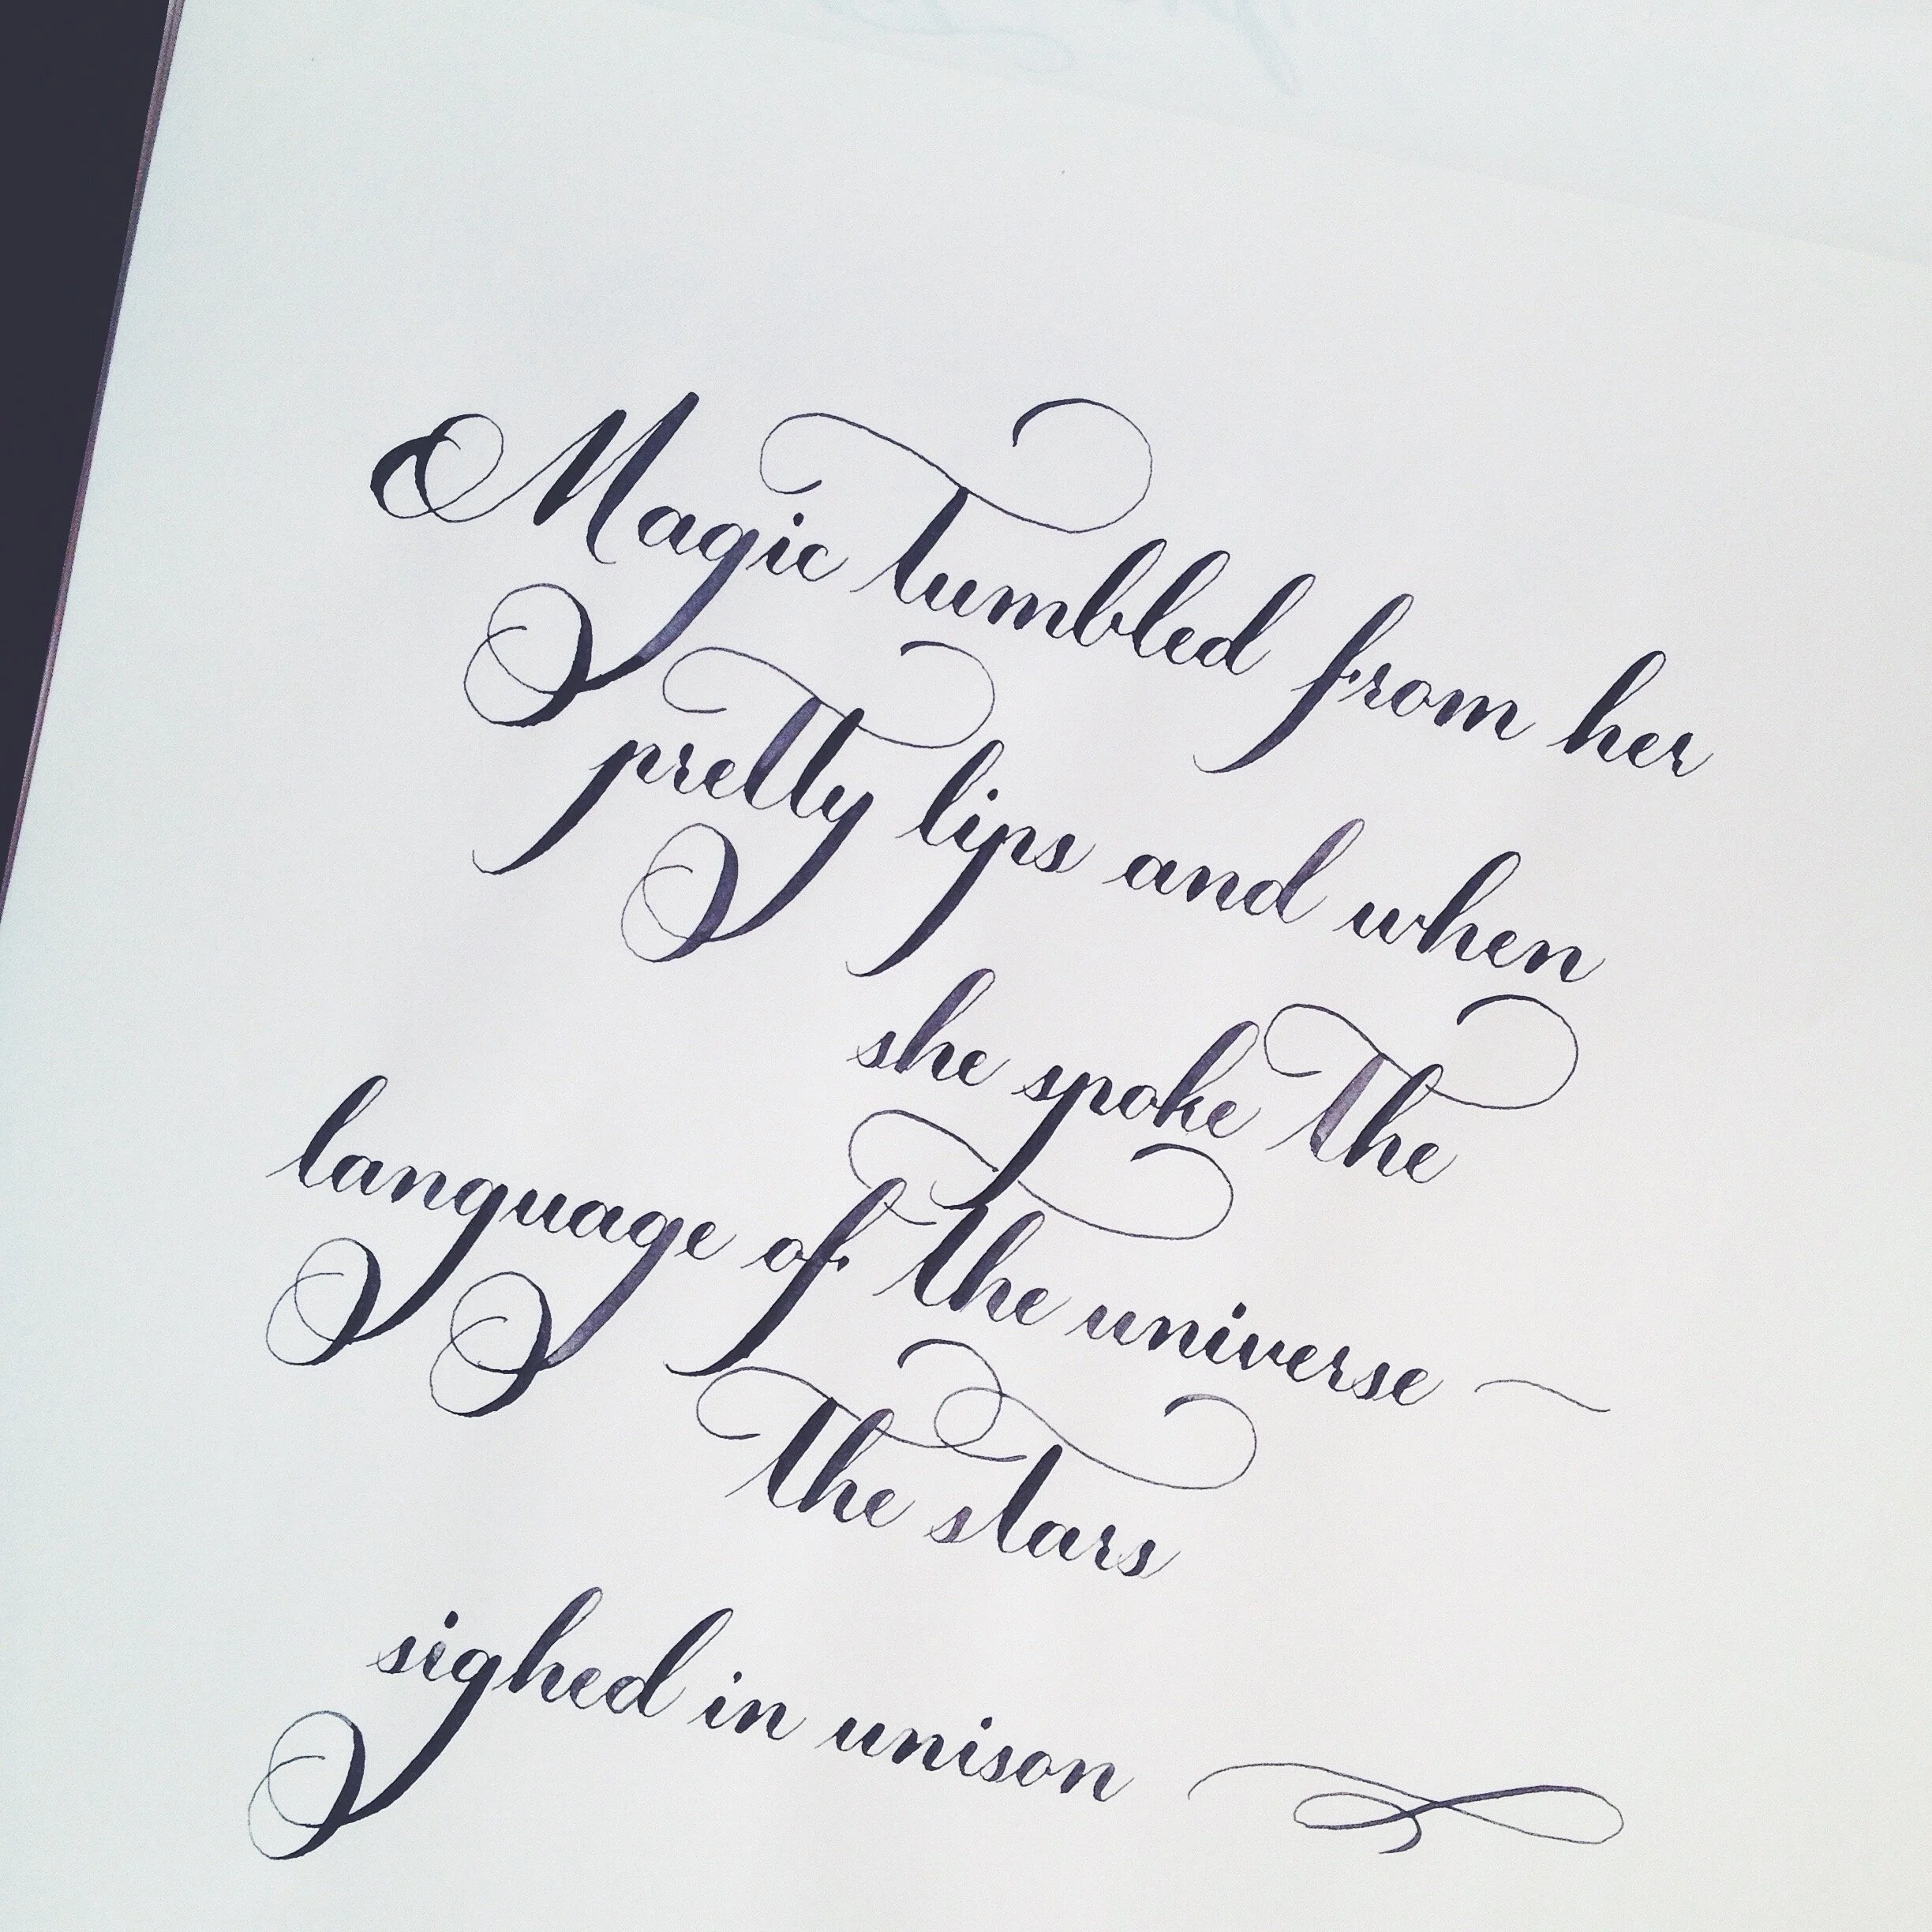 Magic tumbled from her
pretty lips and when
she spoke the
language of the universe —
the stars
sighed in unison